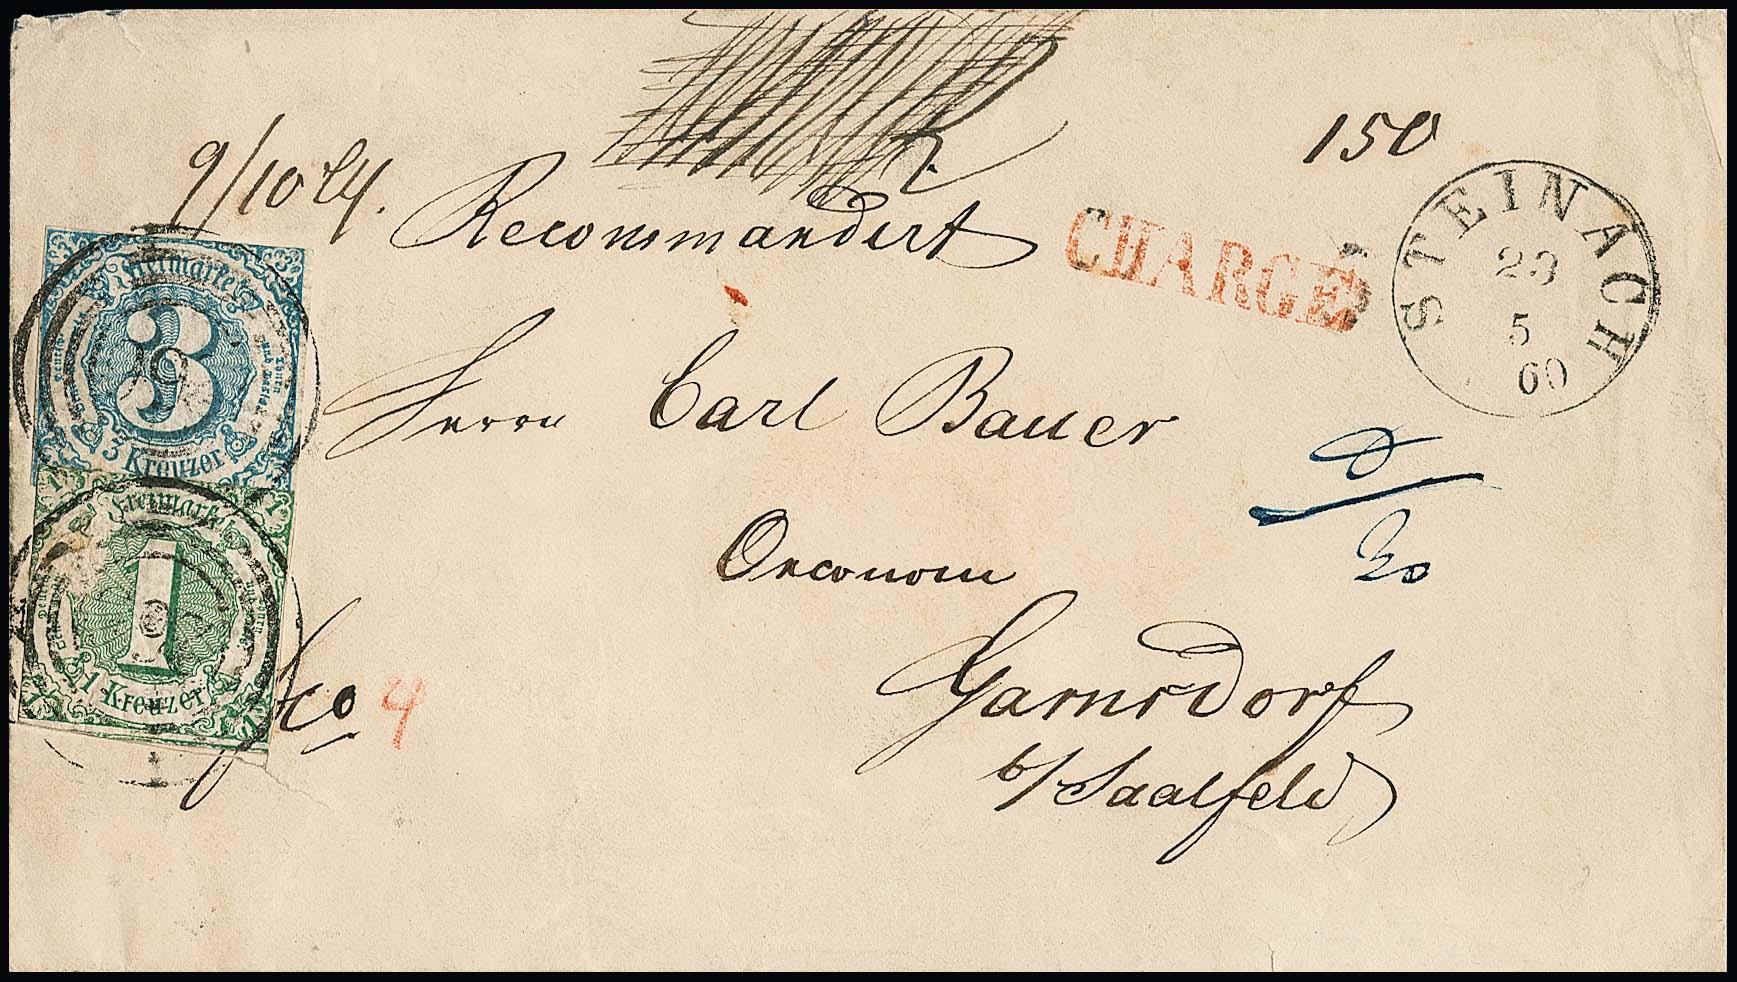 150
9/10 Lth.
Recommandirt
CHARGÉ
STEINACH
23
5
60
3
Freimarke
3 Kreuzer
Herrn Carl Bauer
Oeconom
Freimarke
1
1 Kreuzer
fco 4
Garnsdorf
b/Saalfeld